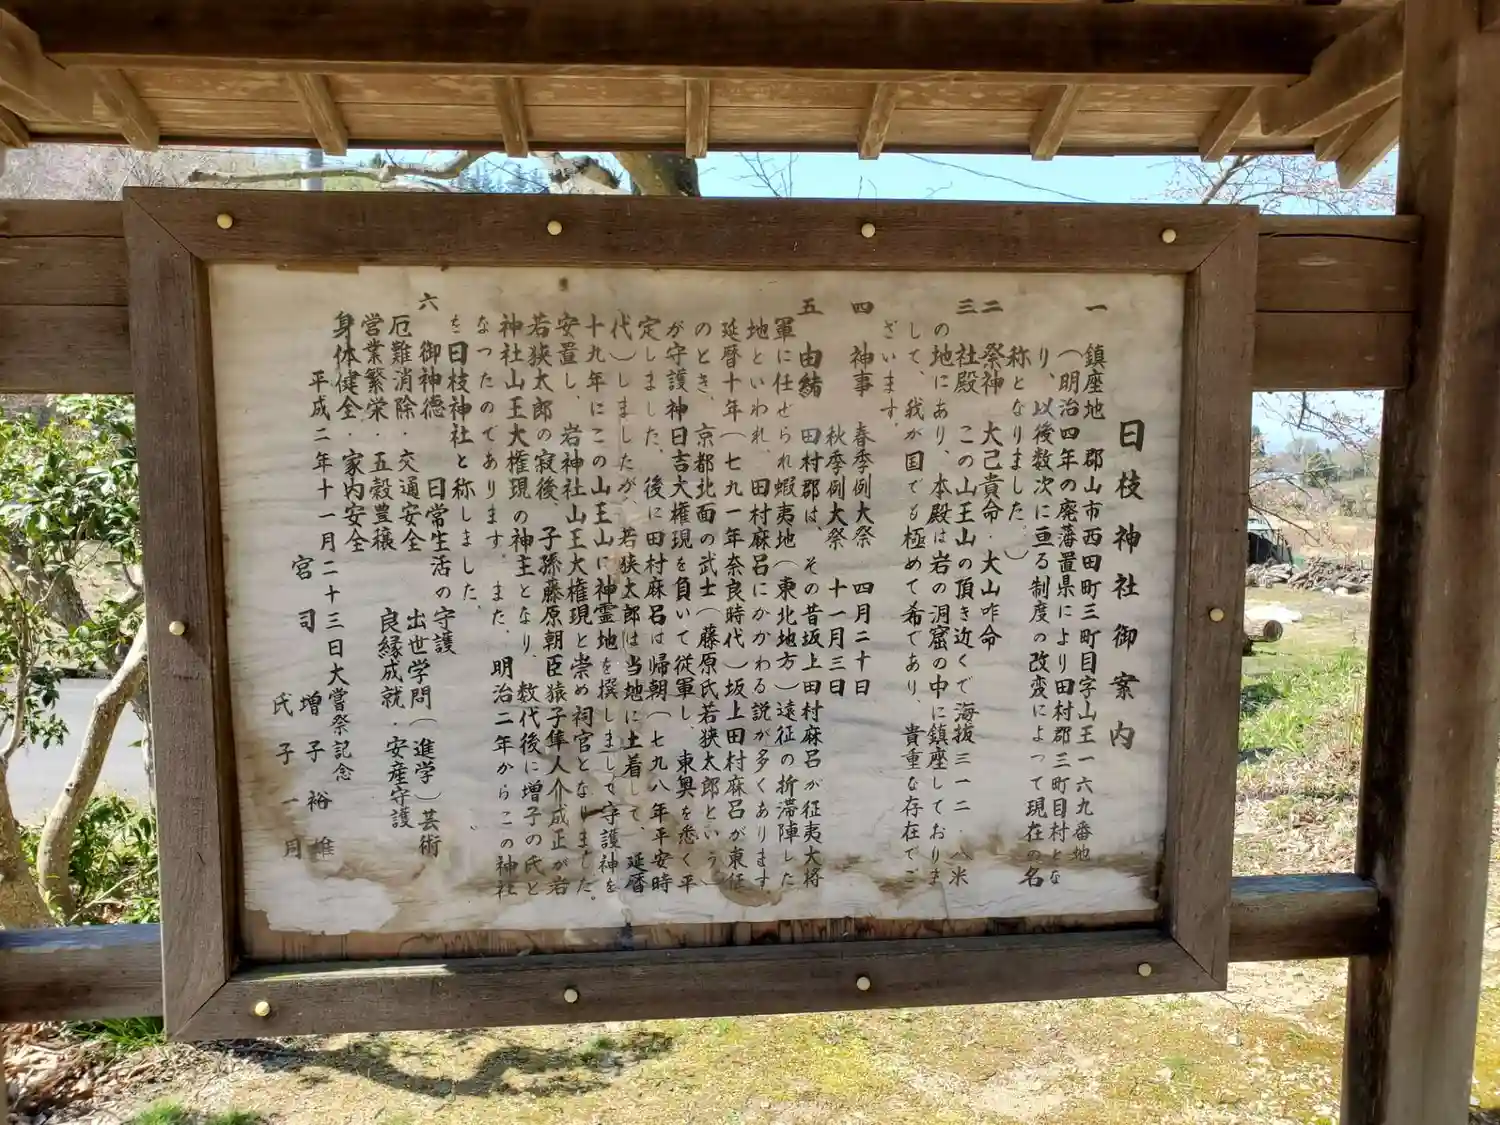 日枝神社御案内
一 鎮座地 郡山市西田町三町目字山王一六九番地
(明治四年の廃藩置県により田村郡三町目村とな
り、以後数次に亘る制度の改変によって現在の名
称となりました。)
二 祭神 大己貴命・大山咋命
三 社殿 この山王山の頂き近くで海抜三一二・八米
の地にあり、本殿は岩の洞窟の中に鎮座しておりま
して、我が国でも極めて希であり、貴重な存在でご
ざいます。
四 神事 春季例大祭 四月二十日
秋季例大祭 十一月三日
五 由緒 田村郡は、その昔坂上田村麻呂が征夷大将
軍に任せられ蝦夷地(東北地方)遠征の折滞陣した
地といわれ、田村麻呂にかかわる説が多くあります
延暦十年(七九一年奈良時代)坂上田村麻呂が東征
のとき、京都北面の武士(藤原氏若狭太郎という)
が守護神日吉大権現を負いて従軍し、東奥を悉く平
定しました、後に田村麻呂は帰朝(七九八年平安時
代)しましたが、若狭太郎は当地に土着して、延暦
十九年にこの山王山に神霊地を撰しまして守護神を
安置し、岩神社山王大権現と崇め祠官となりました。
若狭太郎の寂後、子孫藤原朝臣猿子隼人介成正が岩
神社山王大権現の神主となり、数代後に増子の氏と
なったのであります。また、明治二年からこの神社
を日枝神社と称しました、
六 御神徳 日常生活の守護
厄難消除・交通安全 出世学問(進学)芸術
営業繁栄・五穀豊穣 良縁成就・安産守護
身体健全・家内安全
平成二年十一月二十三日大嘗祭記念
宮司 増子裕雄
氏子一月